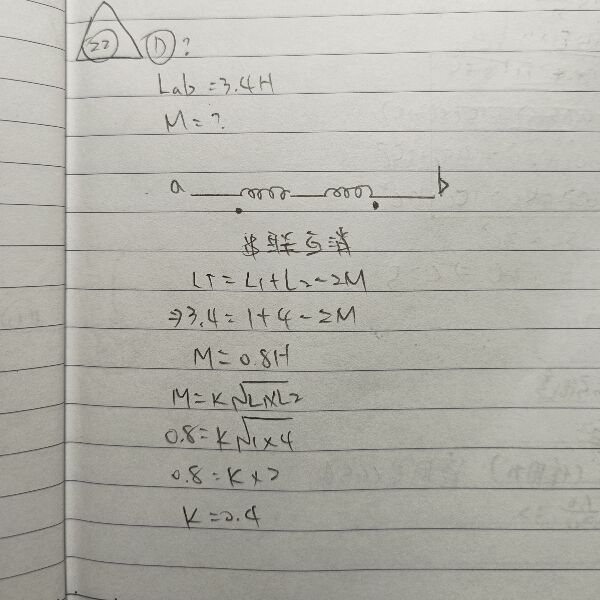 22 D ?
Lab = 3.4H
M = ?
a b
串聯互消
LT = L1 + L2 - 2M
⇒ 3.4 = 1 + 4 - 2M
M = 0.8H
M = K√L1×L2
0.8 = K√1×4
0.8 = K × 2
K = 0.4